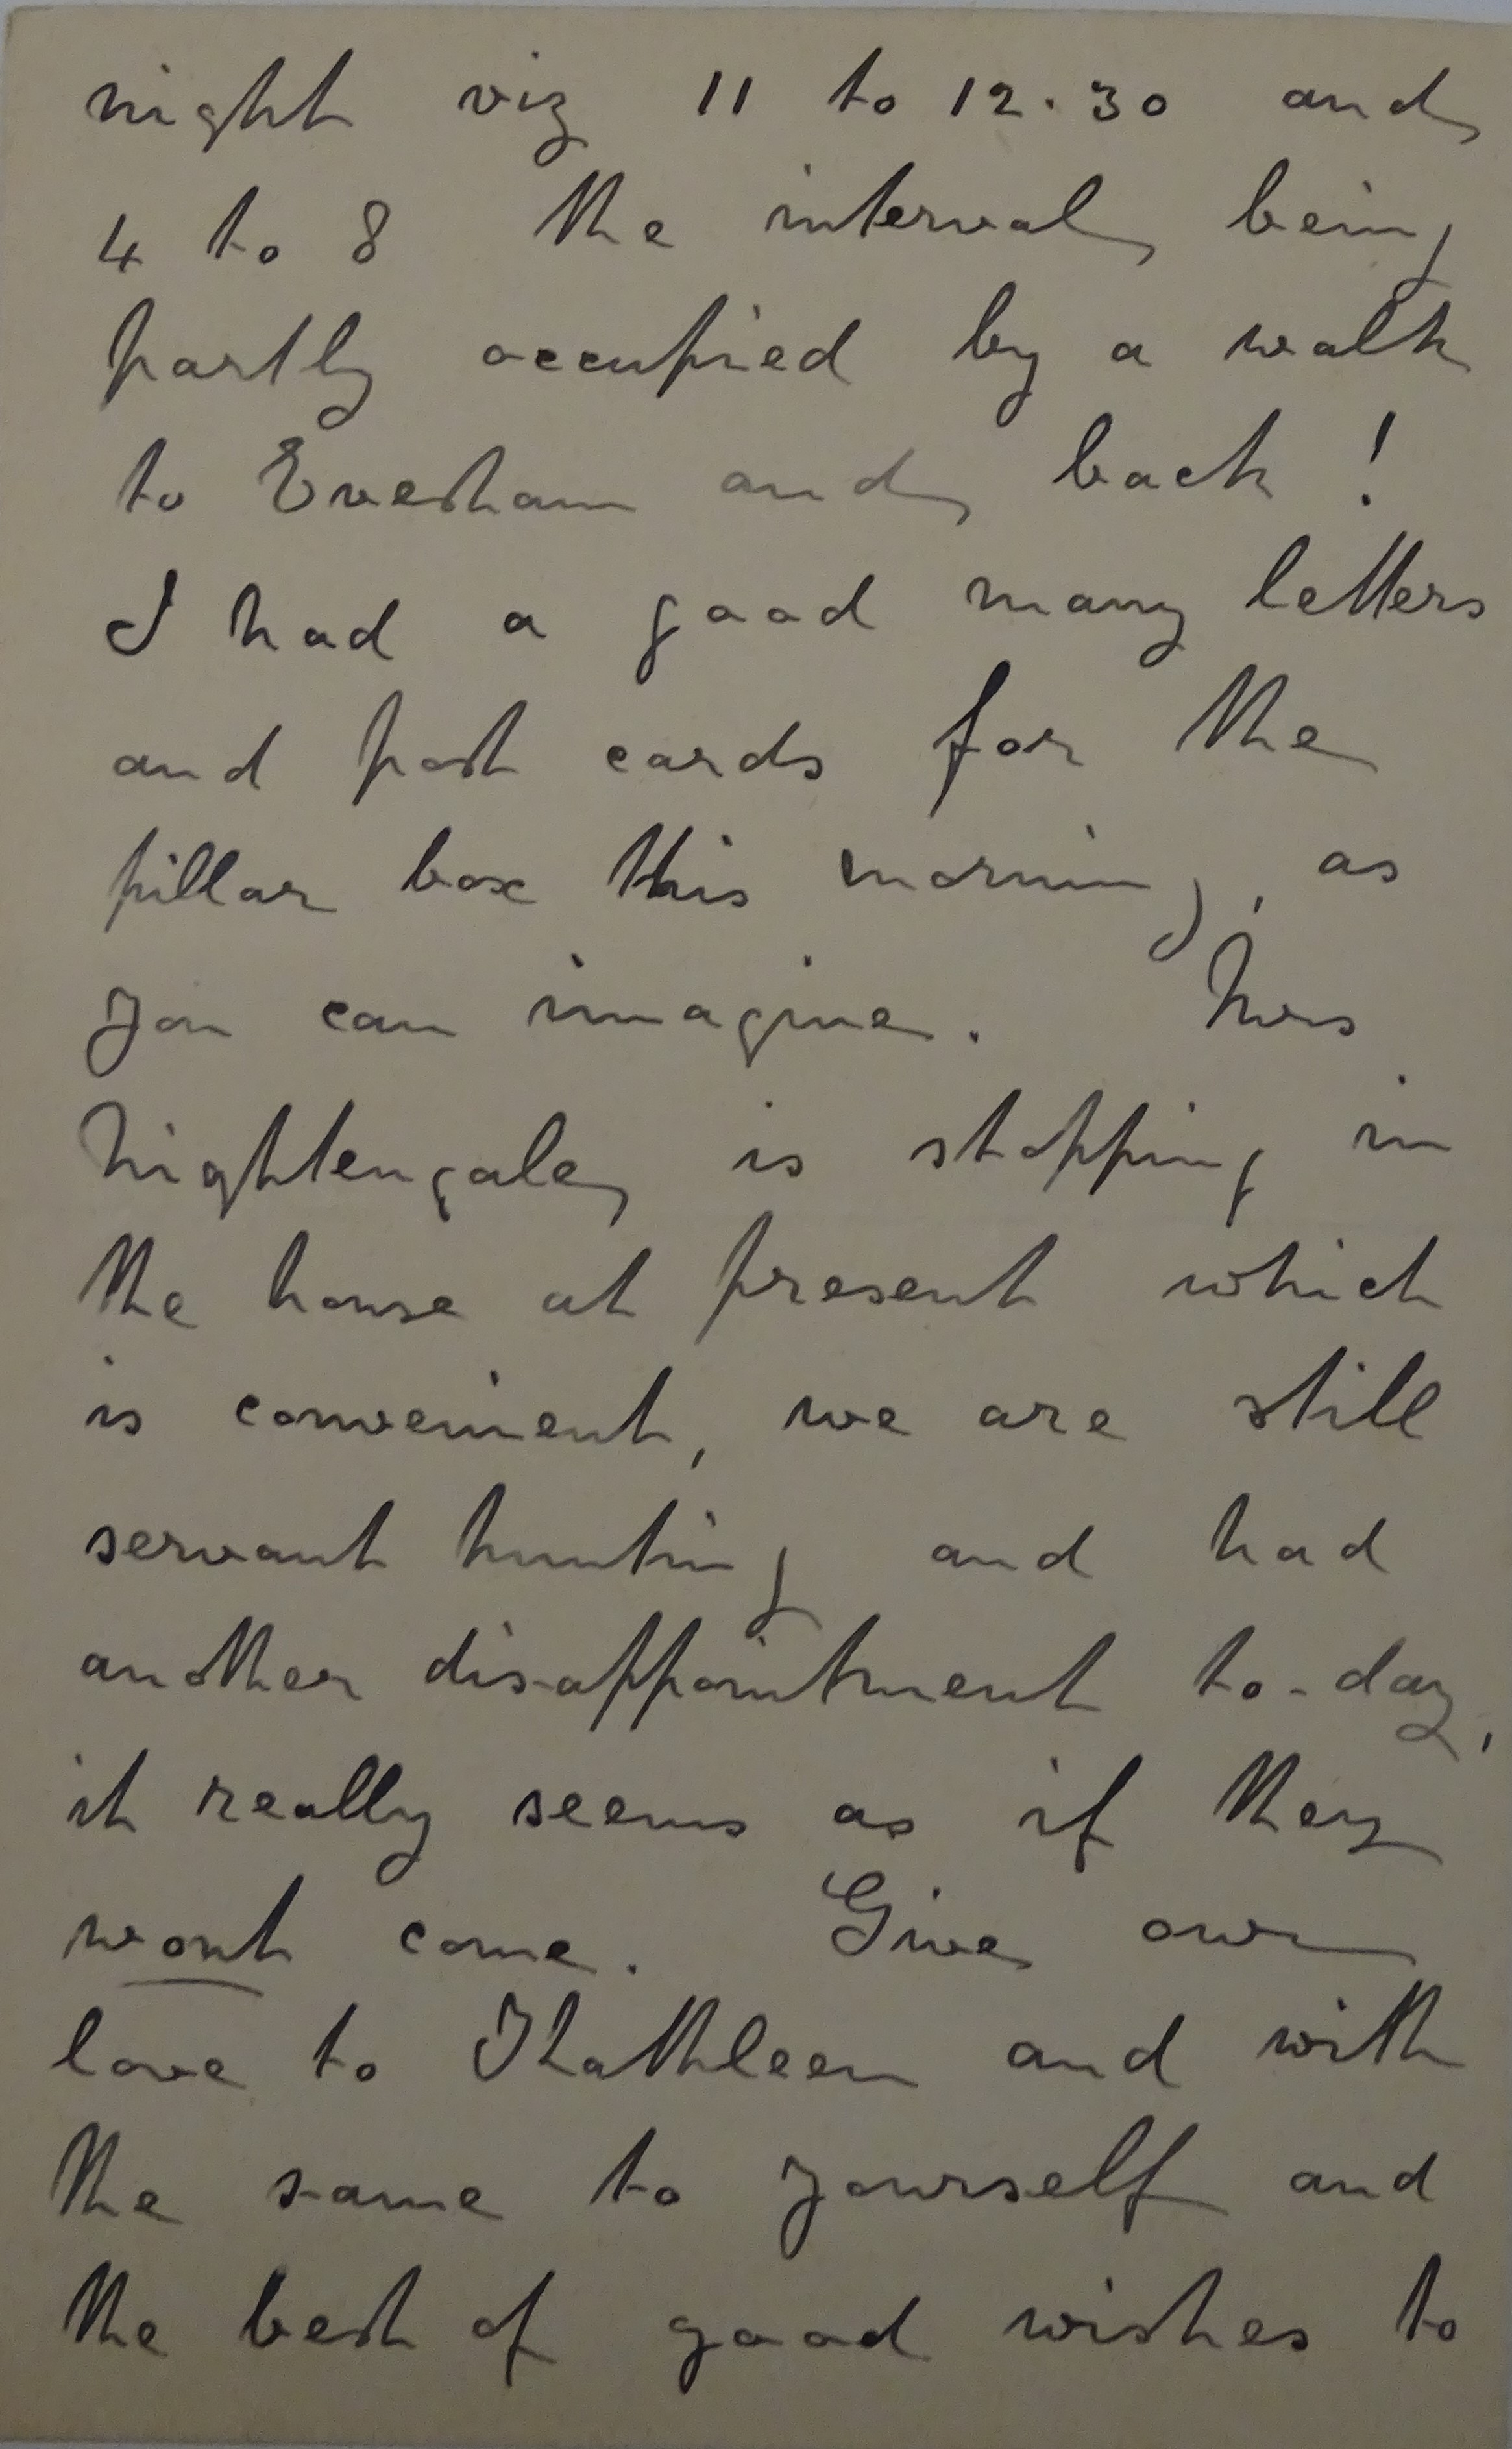 night viz 11 to 12.30 and
4 to 8 the interval being
partly occupied by a walk
to Evesham and back !
I had a good many letters
and post cards for the
pillar box this morning, as
you can imagine. Mrs
Nightengale is stopping in
the house at present which
is convenient, we are still
servant hunting and had
another disappointment to-day,
it really seems as if they
wont come. Give our
love to Kathleen and with
the same to yourself and
the best of good wishes to